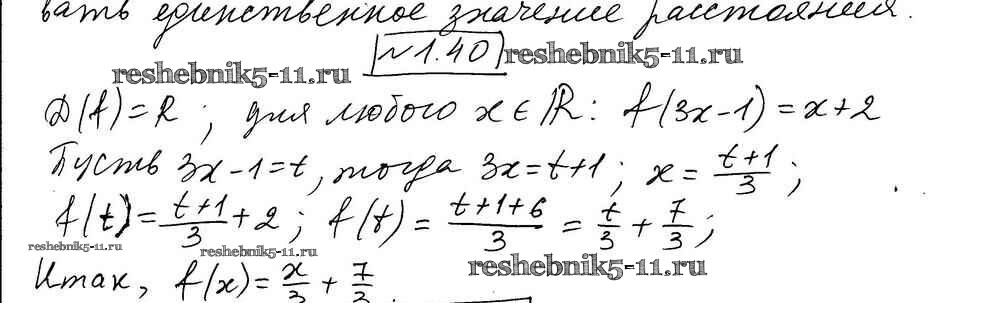 вать единственное значение расстояния.
№1.40 reshebnik5-11.ru
reshebnik5-11.ru
D(f)=R; для любого x∈R: f(3x-1)=x+2
Пусть 3x-1=t, тогда 3x=t+1; x=\frac{t+1}{3};
f(t)=\frac{t+1}{3}+2; f(t)=\frac{t+1+6}{3}=\frac{t}{3}+\frac{7}{3};
reshebnik5-11.ru reshebnik5-11.ru reshebnik5-11.ru
Итак, f(x)=\frac{x}{3}+\frac{7}{3}.